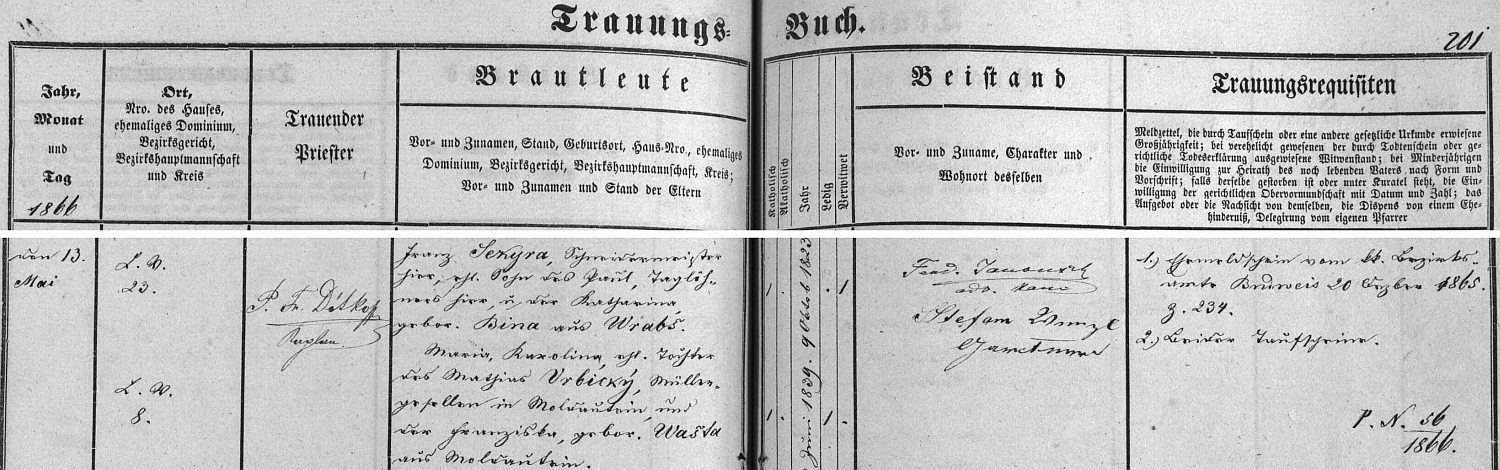 Trauungs-Buch.
201
Jahr,
Monat
und
Tag
1866
Ort,
Nro. des Hauses,
ehemaliges Dominium,
Bezirksgericht,
Bezirkshauptmannschaft
und Kreis
Trauender
Priester
Brautleute
Vor- und Zunamen, Stand, Geburtsort, Haus-Nro., ehemaliges
Dominium, Bezirksgericht, Bezirkshauptmannschaft, Kreis;
Vor- und Zunamen und Stand der Eltern
Katholisch
Akatholisch
Jahr
Ledig
Verwitwet
Beistand
Vor- und Zuname, Charakter und
Wohnort desselben
Trauungsrequisiten
Meldzettel, die durch Taufschein oder eine andere gesetzliche Urkunde erwiesene
Großjährigkeit; bei verehelicht gewesenen der durch Todtenschein oder ge-
richtliche Todeserklärung ausgewiesene Witwenstand; bei Minderjährigen
die Einwilligung zur Heirath des noch lebenden Vaters nach Form und
Vorschrift; falls derselbe gestorben ist oder unter Kuratel steht, die Ein-
willigung der gerichtlichen Obervormundschaft mit Datum und Zahl; das
Aufgebot oder die Nachsicht von demselben, die Dispens von einem Ehe-
hinderniß, Delegirung vom eigenen Pfarrer
den 13.
Mai
L. V.
23.
L. V.
8.
P. Fr. Ditkopf
Kaplan.
Franz Sekyra, Schneidermeister
hier, ehl. Sohn des Paul, Taglöh-
ners hier, u. der Katharina
gebor. Bina aus Wrabś.
Maria, Karolina, ehl. Tochter
des Mathias Vrbický, Müller-
gesellen in Moldautein, und
der Franziska, gebor. Wašta
aus Moldautein.
1. 9 Oktob 1823 . 1
1. Juni 1839. 1.
Ferd.
Stefan Wenzl
1.) Ehemeldschein vom kk. Bezirks-
amte Budweis 20 Dezber 1865.
Z. 234.
2.) Beider Taufscheine.
P. N. 56
1866.